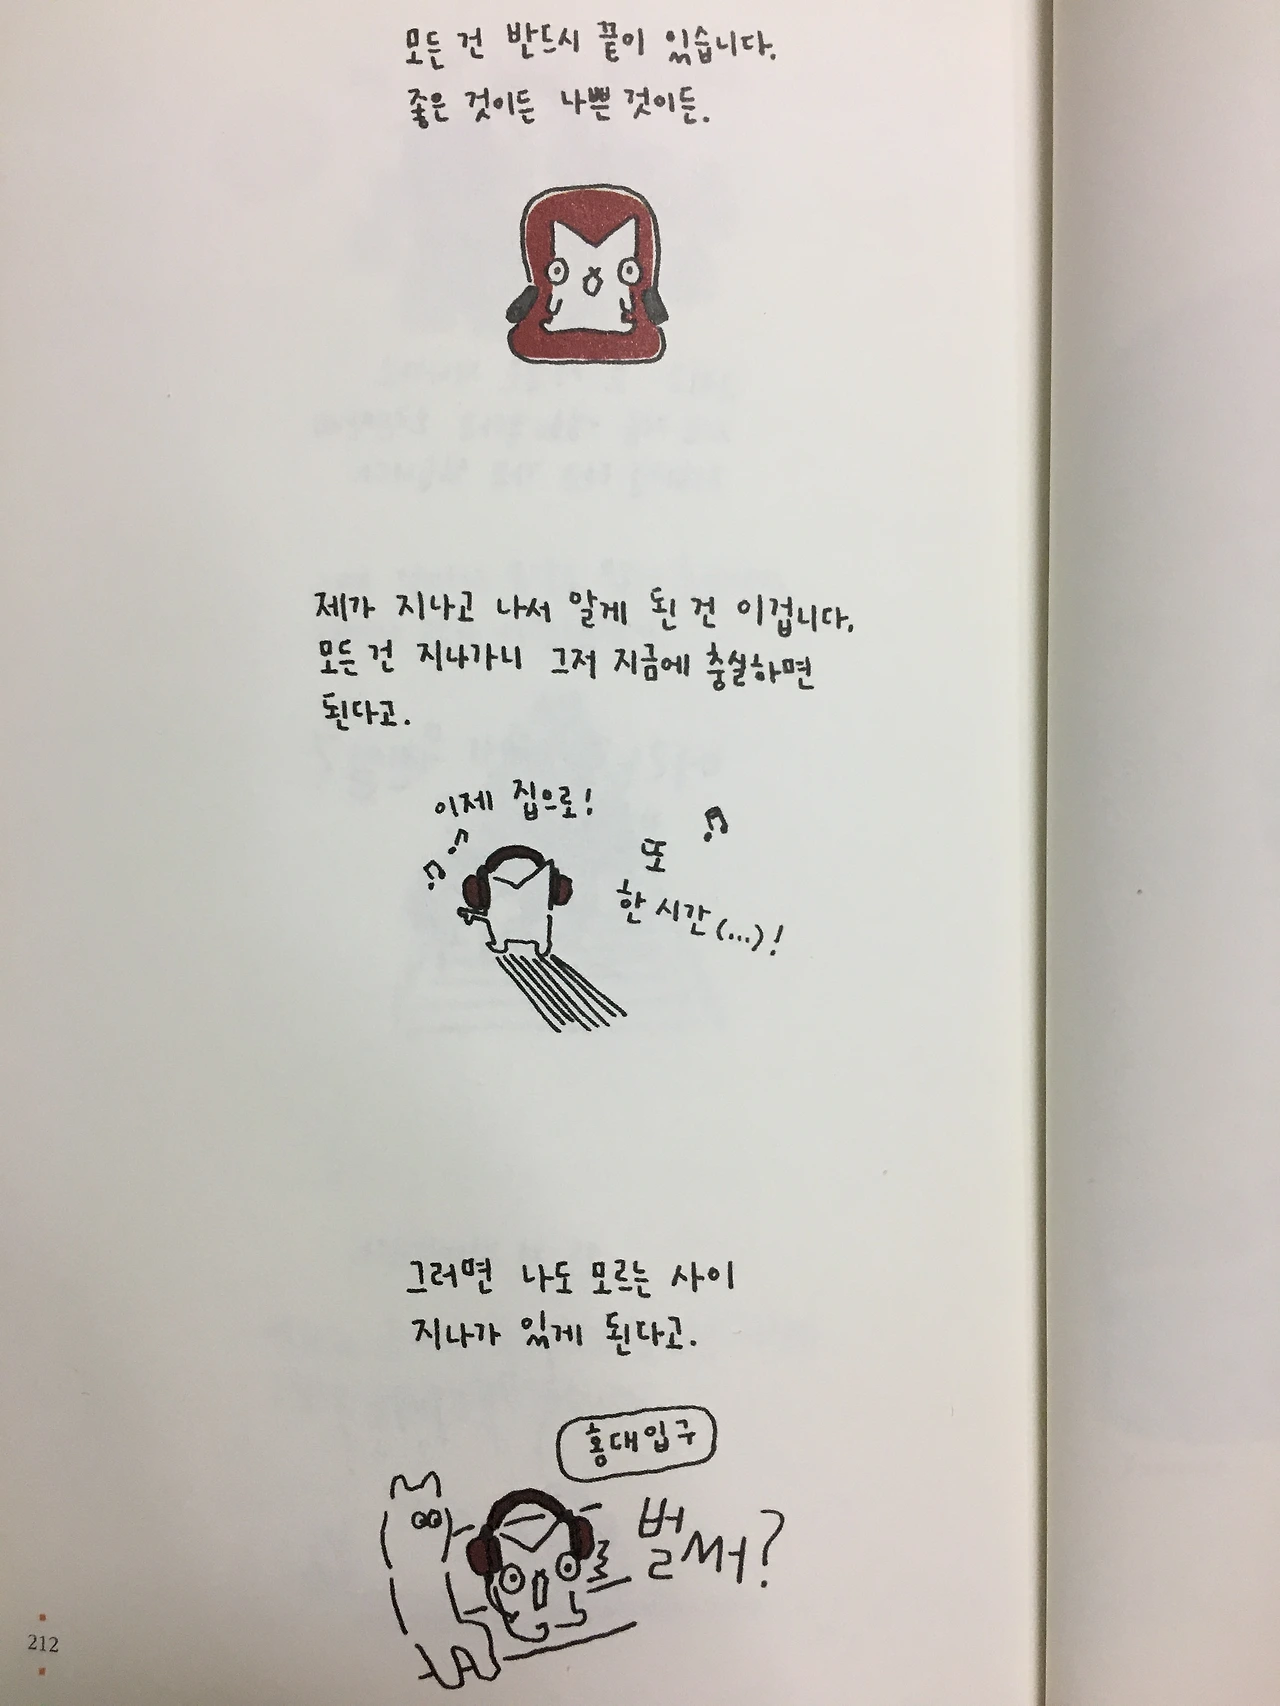 모든 건 반드시 끝이 있습니다.
좋은 것이든 나쁜 것이든.
제가 지나고 나서 알게 된 건 이겁니다.
모든 건 지나가니 그저 지금에 충실하면
된다고.
이제 집으로!
또
한 시간(...)!
그러면 나도 모르는 사이
지나가 있게 된다고.
홍대입구
벌써?
212